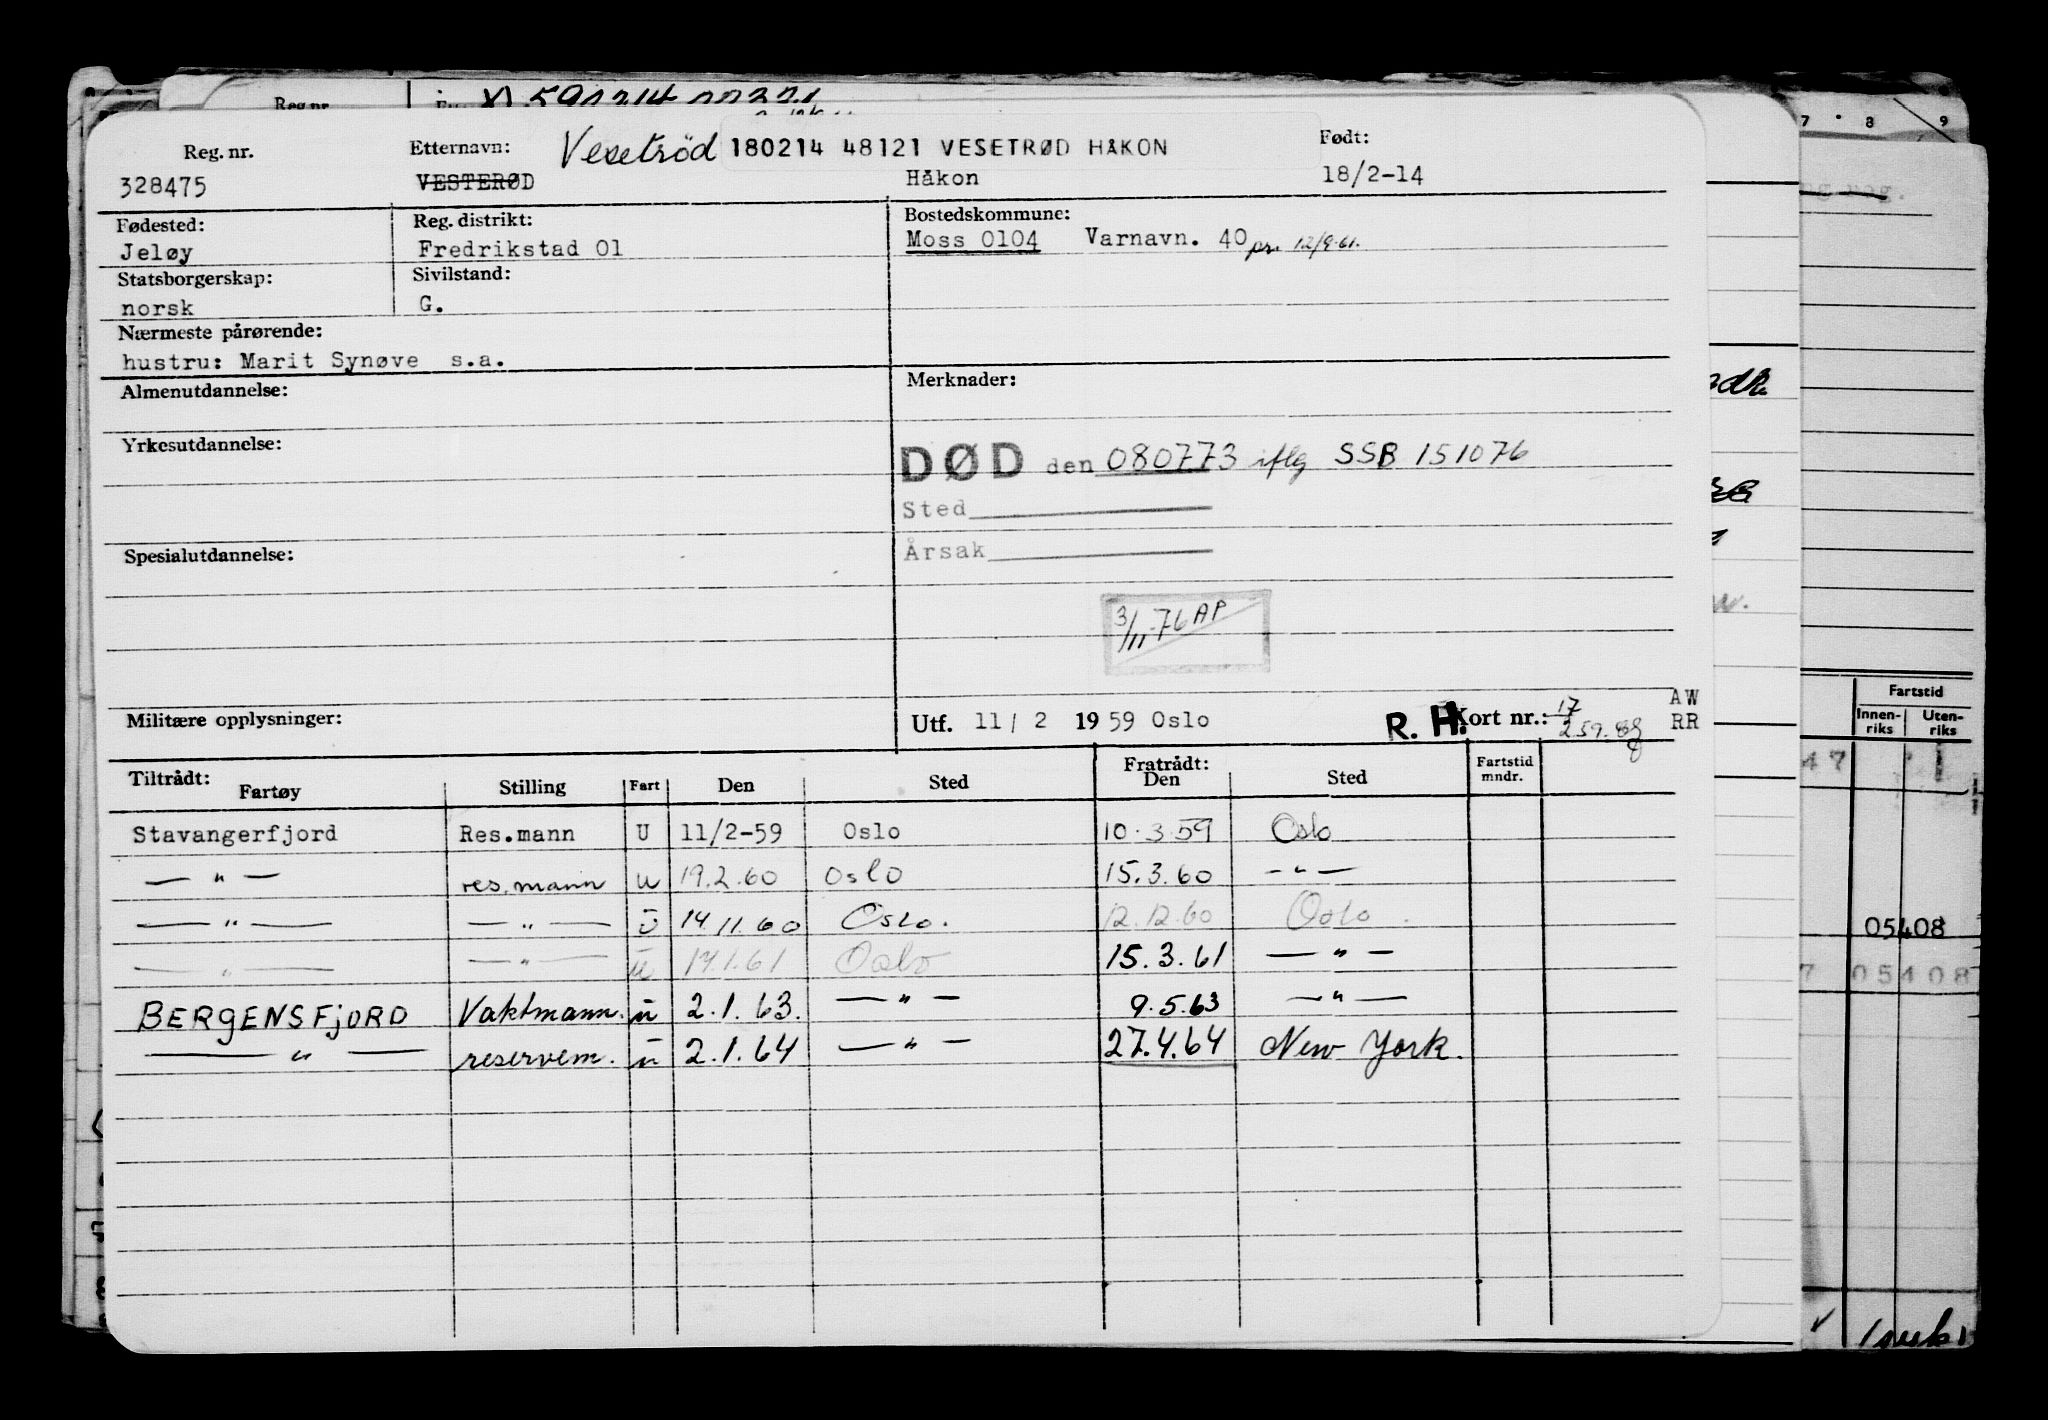 Reg. nr. Etternavn: Vesetröd 180214 48121 VESETRØD HÅKON Født:
328475 VESTERØD Håkon 18/2-14
Fødested: Reg. distrikt: Bostedskommune:
Jeløy Fredrikstad 01 Moss 0104 Varnavn. 40 pr. 12/9-61.
Statsborgerskap: Sivilstand:
norsk G.
Nærmeste pårørende:
hustru: Marit Synøve s.a.
Almenutdannelse: Merknader:
Yrkesutdannelse:
DØD den 080773 iflg SSB 151076
Sted
Årsak
Spesialutdannelse:
3/11-76 AP
Militære opplysninger: Utf. 11/ 2 1959 Oslo R. H. Kort nr.: 17 AW
RR
Tiltrådt: Fartøy Stilling Fart Den Sted Fratrådt: Den Sted Fartstid mndr.
Stavangerfjord Res.mann U 11/2-59 Oslo 10.3.59 Oslo
— " — res.mann u 19.2.60 Oslo 15.3.60 — " —
— " — — " — u 14.11.60 Oslo. 12.12.60 Oslo.
— " — — " — u 17.1.61 Oslo 15.3.61 — " —
BERGENSFJORD Vaktmann. u 2.1.63. — " — 9.5.63 — " —
— " — reservem. u 2.1.64 — " — 27.4.64 New York.
Reg.nr
7 8 9
Fartstid
Innen-riks Uten-riks
47
05408
7 05408